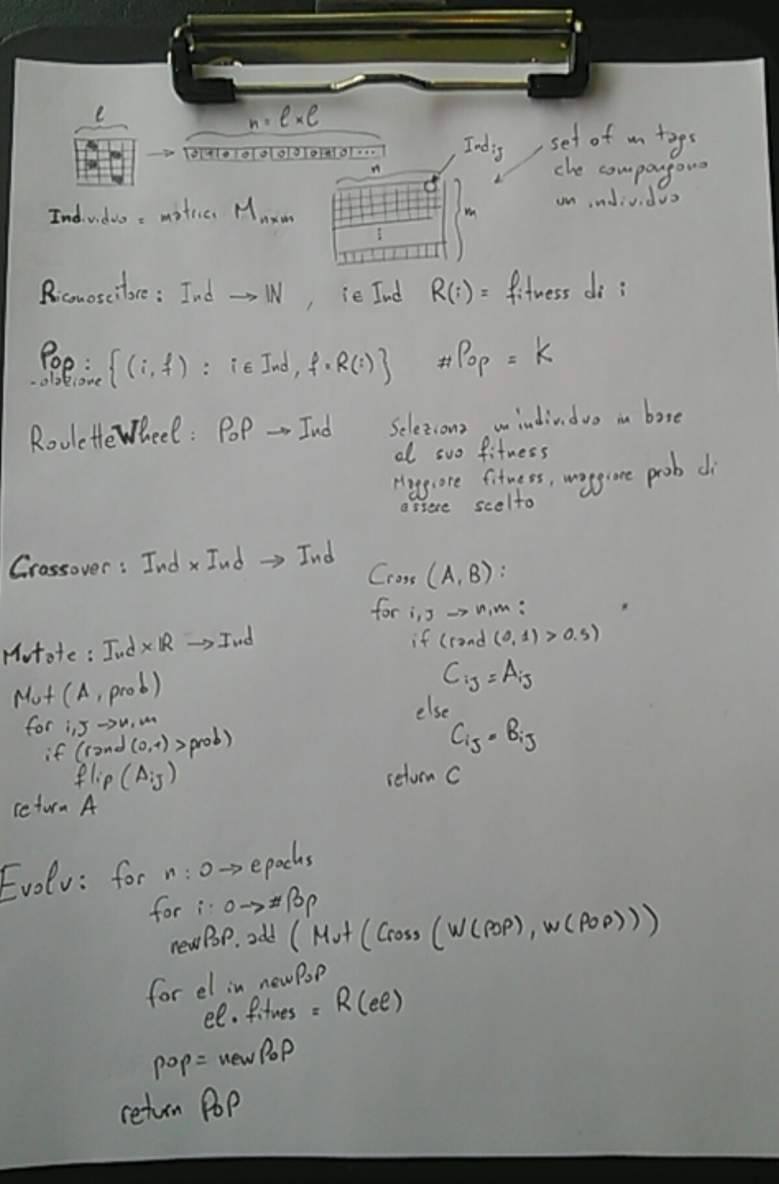 l
n = l × l
n
Ind ij
set of m tags
che compongono
un individuo
m
Individuo = matrici M n×m
Riconoscitore : Ind → IN , i ∈ Ind R(i) = fitness di i
Pop : { (i, f) : i ∈ Ind, f = R(i) } #Pop = K
-olazione
RouletteWheel : PoP → Ind
Seleziona un individuo in base
al suo fitness
Maggiore fitness, maggiore prob di
essere scelto
Crossover : Ind × Ind → Ind
Cross (A, B) :
for i,j → n,m :
if (rand (0,1) > 0.5)
Cij = Aij
else
Cij = Bij
return C
Mutate : Ind × IR → Ind
Mut (A, prob)
for i,j → n,m
if (rand (0,1) > prob)
flip (Aij)
return A
Evolv : for n : 0 → epochs
for i : 0 → #Pop
newPoP.add ( Mut ( Cross ( W(POP), W(POP) ) )
for el in newPoP
el.fitnes = R(el)
pop = newPoP
return PoP